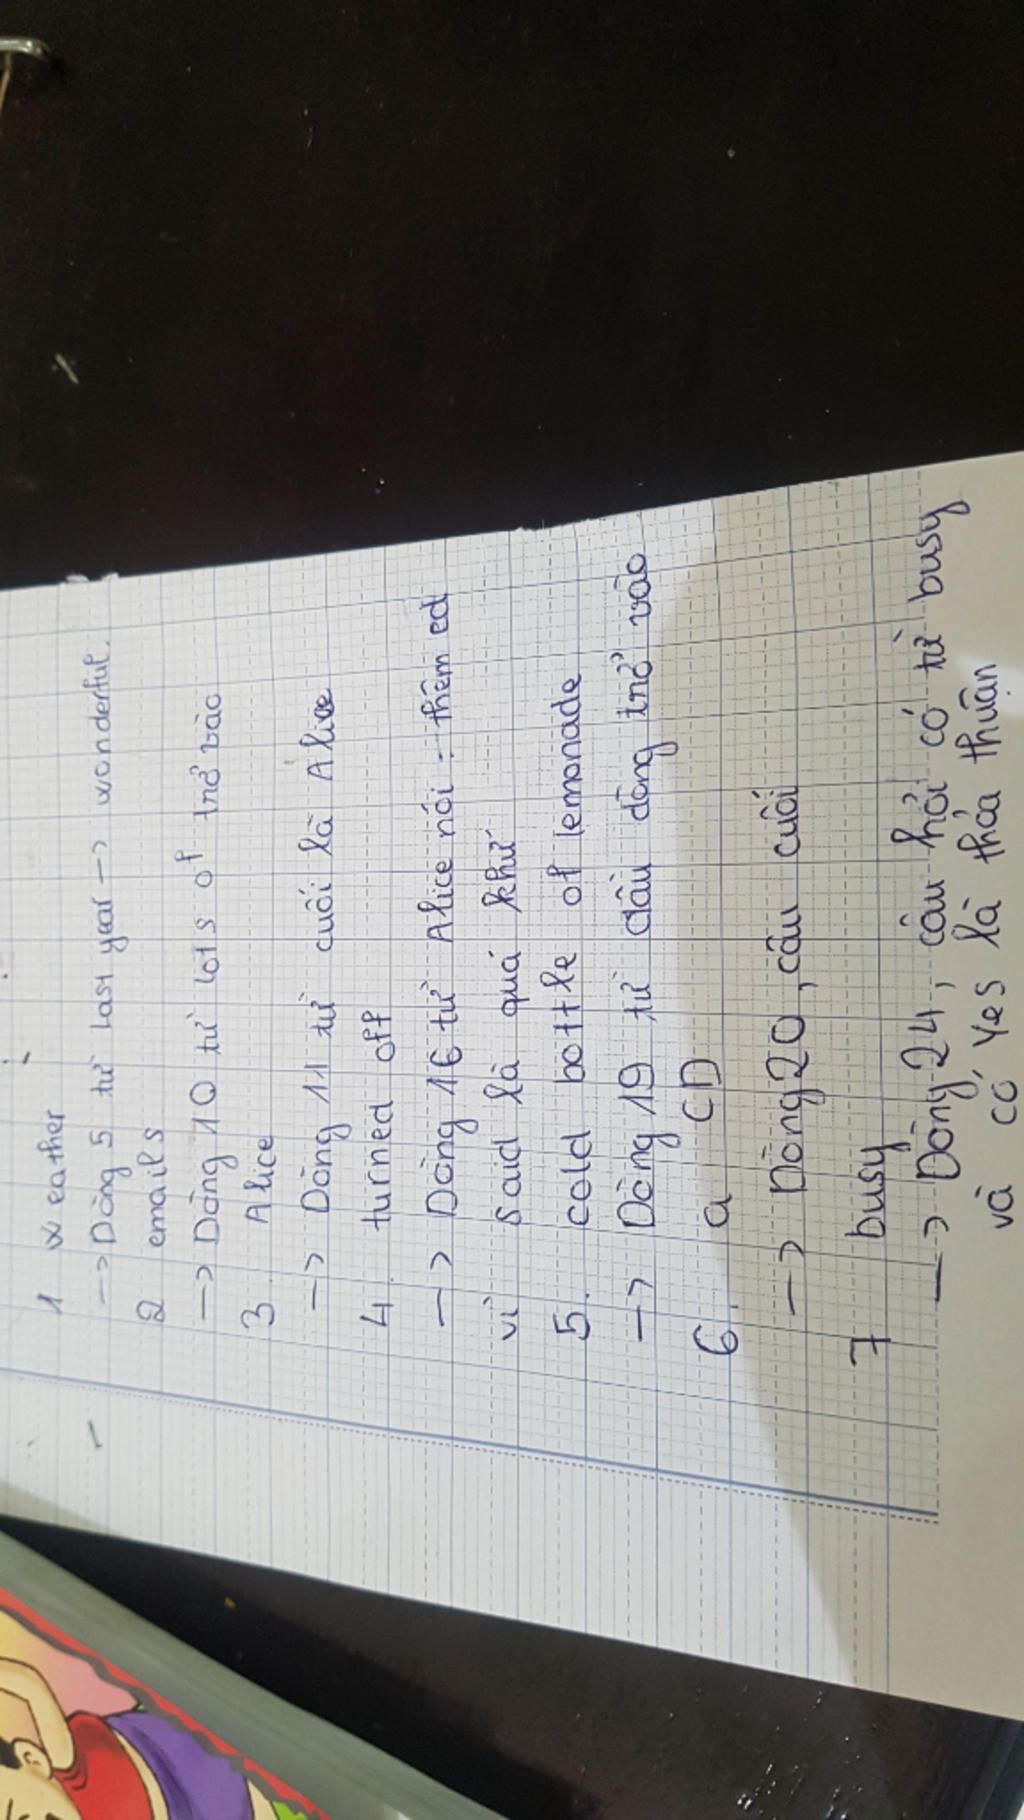 1 weather
-> Dòng 5 từ last year -> wonderful.
2 emails
-> Dòng 10 từ lots of trở vào
3. Alice
-> Dòng 11 từ cuối là Alice
4. turned off
-> Dòng 16 từ Alice nói : thêm ed
vì said là quá khứ
5. cold bottle of lemonade
-> Dòng 19 từ dấu dòng trở vào
6. a CD
-> Dòng 20, câu cuối
7 busy
-> Dòng 24, câu hỏi có từ busy
và có Yes là thỏa thuận